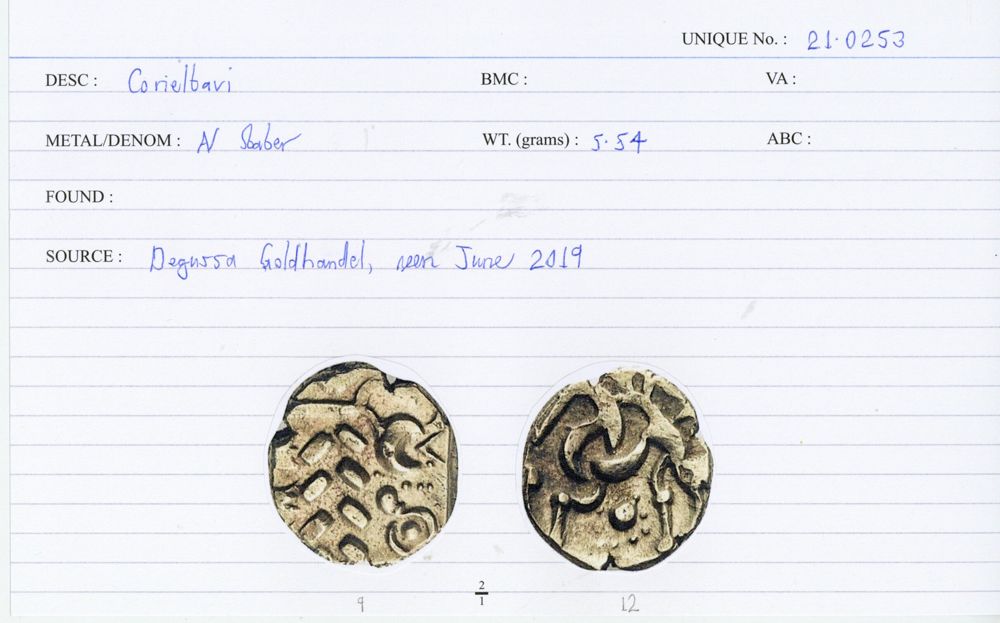 UNIQUE No. : 21.0253
DESC : Corieltavi BMC : VA :
METAL/DENOM : N Stater WT. (grams) : 5.54 ABC :
FOUND :
SOURCE : Degussa Goldhandel, seen June 2019
2
1
9 12